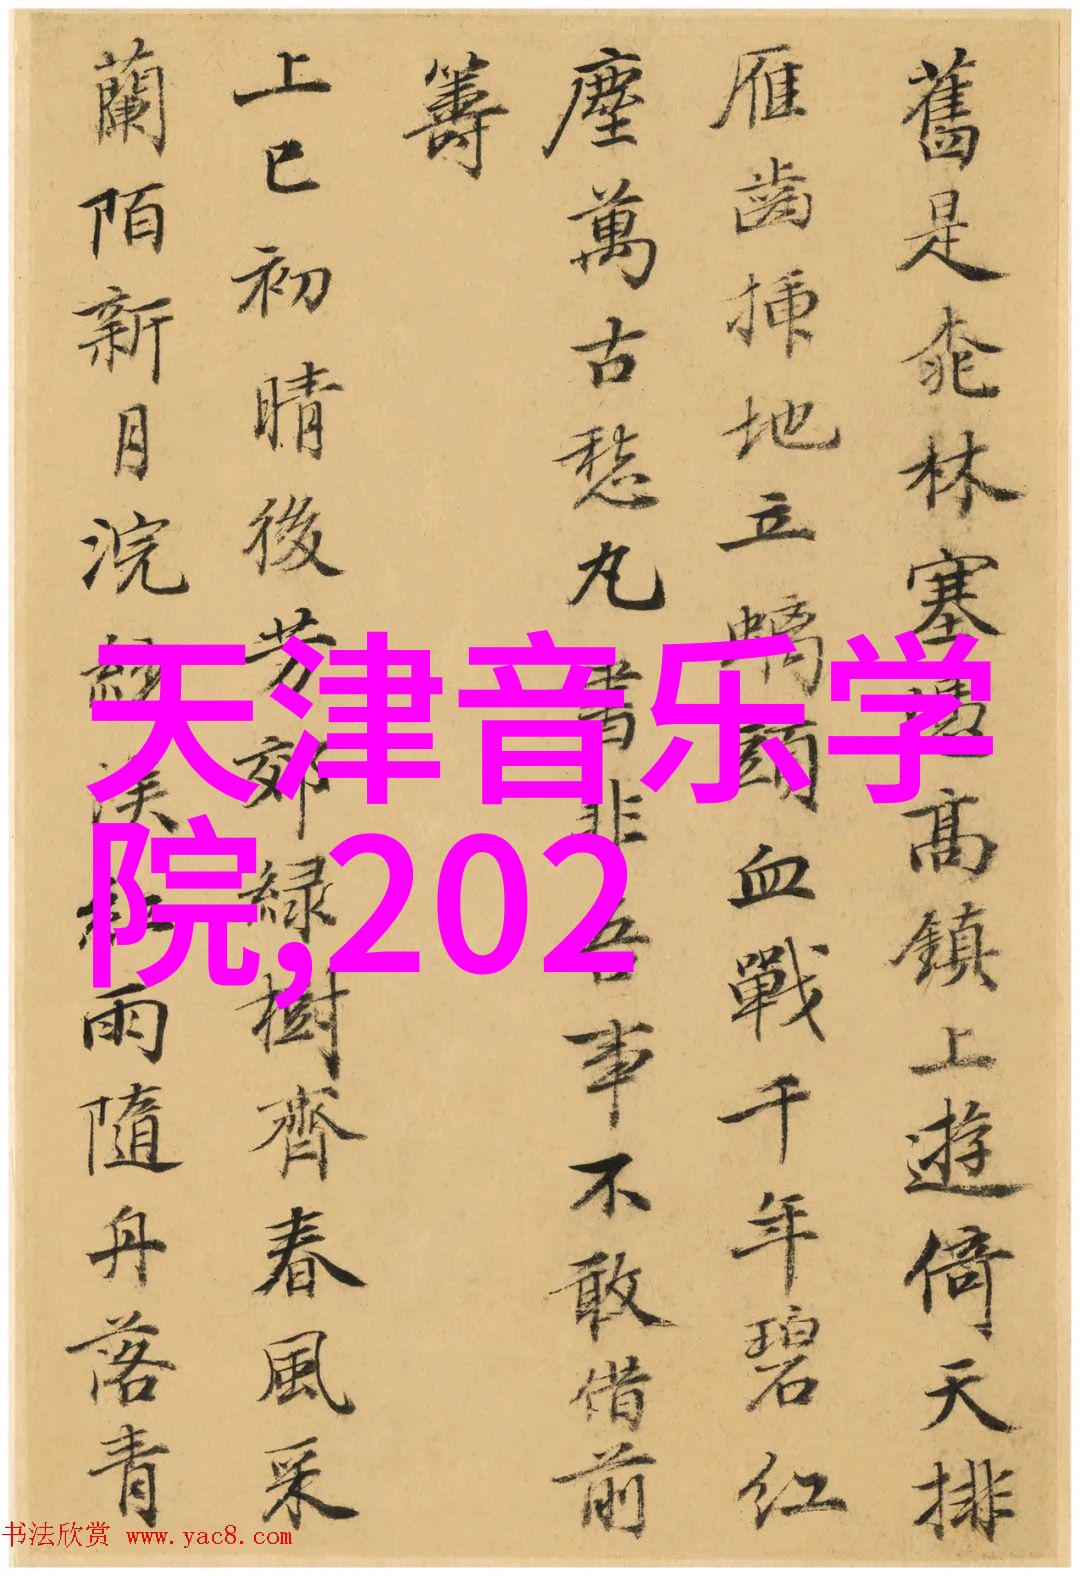 舊是桃林塞邊高鎮上遊倚天排
雁齒插地立螭頭血戰千年碧紅
塵萬古愁丸書非吾事不敢借前
籌
上巳初晴後芳郊綠樹齊春風采
蘭陌新月浣紗溪紅雨隨舟落青
天津音乐学
院,202
书法欣赏 www.yac8.com